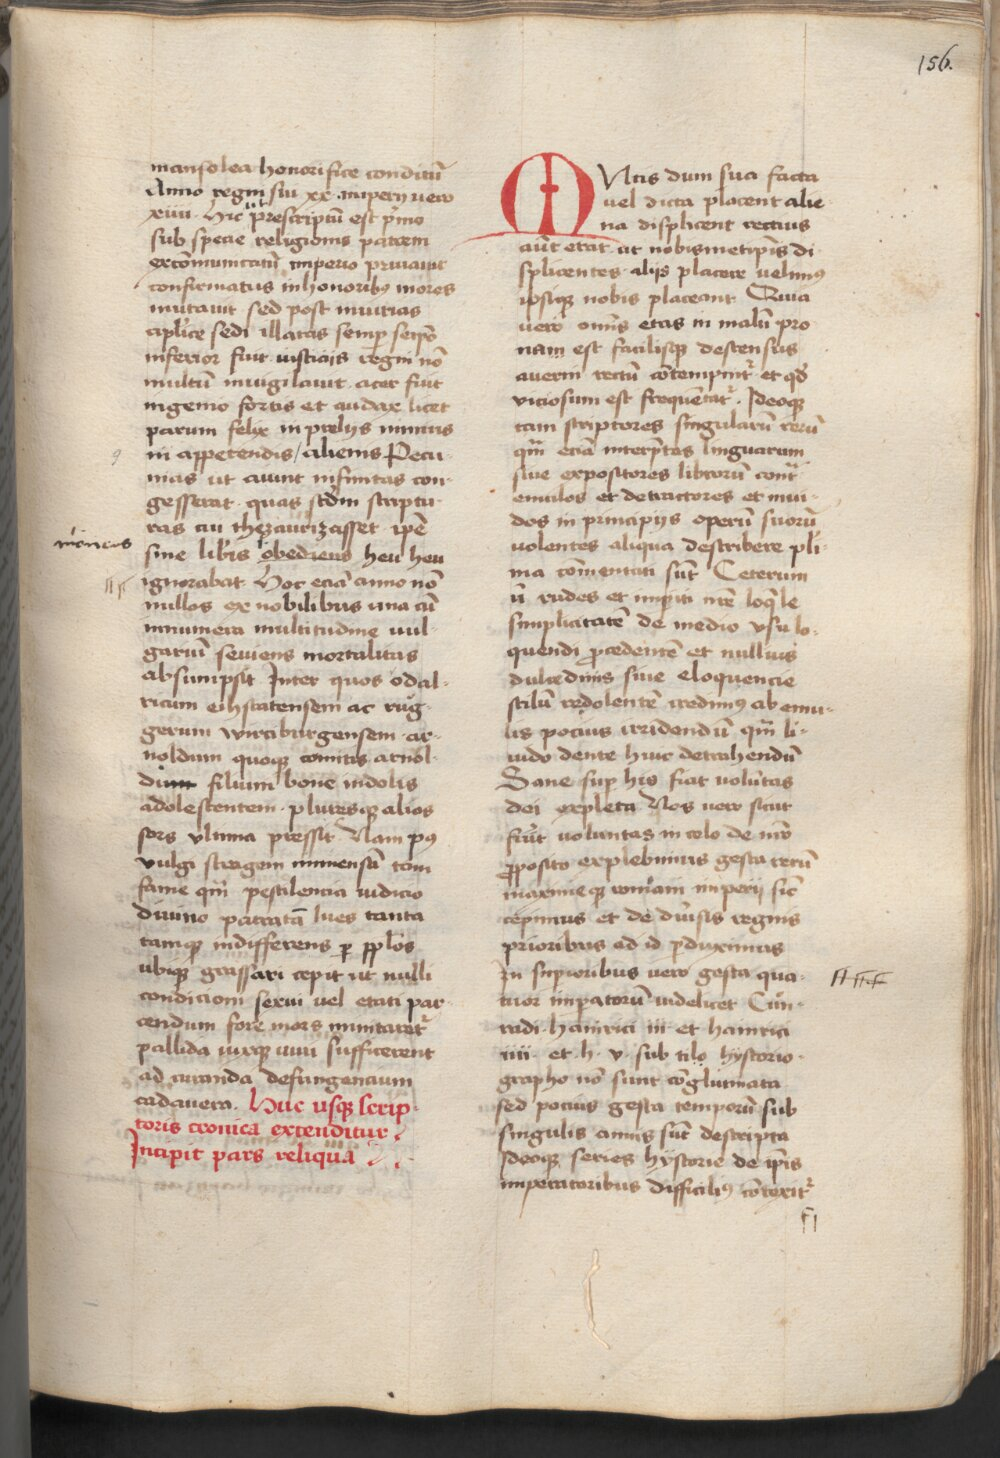 156.
mansolea honorifice conditũ
Anno regni sui xx. imperij uero
xiiii. Hic ut prescriptũ est p̃mo
sub specie religionis patrem
excõmunicatũ imperio priuauit
confirmatus in honoribꝰ mores
mutauit sed post iniurias
aplice sedi illatas semp̱ seip̃o
inferior fuit iusticiis regni nõ
multũ inuigilauit. acer fuit
ingenio fortis et audax licet
parum felix in prelijs nimius
in appetendis / alienis Pecu-
nias ut aiunt infinitas con-
gesserat. quas scdm scriptu-
ras cui thezaurizasset ip̃e
sine libris obediens heu heu
moriens
ignorabat Hoc eciã anno nõ
nullos ex nobilibus una cũ
innumera multitudine uul-
gariũ seuiens mortalitas
absumpsit Inter quos odal-
ricum eihstatensem ac rug-
gerum wirciburgensem. ar-
noldum quoqꝫ comitis arnol-
di filium bone indolis
adolescentem. pluresqꝫ alios
sors vltima pressit Nam pꝰ
vulgi stragem inmensã tam
fame qm̃ pestilencia iudicio
diuino patratã lues tanta
tamqꝫ indifferens ꝑ pplos
ubiqꝫ grassari cepit ut nulli
condicioni sexui vel etati par-
cendum fore mors minitaretͬ
pallida uixqꝫ uiui sufficerent
ad curanda defungencium
cadauera. Huc usqꝫ scrip-
toris cronica extenditur.
Incipit pars reliqua
MUltis dum sua facta
uel dicta placent alie
na displicent rectius
aũt erat ut nobismetip̃is di
splicentes aliis placere velimꝰ
ipsiqꝫ nobis placeant Quia
uero om̃is etas in malũ pro
nam est facilisqꝫ descensus
auerni rectũ cõtempnitͬ et qd̾
viciosum est freqũetatͬ. Ideoqꝫ
tam scriptores singularũ rerũ
qm̃ eciã interp̃tes linguarum
siue expositores librorũ contͬ
emulos et detractores et inui-
dos in principijs operũ suorũ
uolentes aliqua describere pl̾i-
ma cõmentati sũt Ceterum
ũ rudes et imperiti nr̃e loqͣle
simplicitatẽ de medio vsu lo-
quendi ꝓcedentẽ et nullius
dulcedinis siue eloquencie
stilũ redolentẽ credimꝰ ab emu-
lis pocius irridendũ qm̃ li-
uido dente huic detrahendũ
Sane sup̱ his fiat uolũtas
dei expleta Nos uero sicut
fuer̃t uoluntas in celo de nr̃o
ꝓposito explebimus gesta rerũ
maximeqꝫ romani imperij sic̃
cepimus et de diu̾sis regnis
prioribus ad id ꝑduximus
In sup̱ioribus uero gesta qua-
tuor imp̱atorũ uidelicet Cũn-
radi. hainrici iii. et hainrici
iiii. et h. v. sub tilo hystorio-
grapho nõ sunt cõglutinata
sed pocius gesta temporũ sub
singulis annis sũt descripta
Ideoqꝫ series hystorie de ip̃is
imperatoribus difficiliꝰ cõtexitͬ